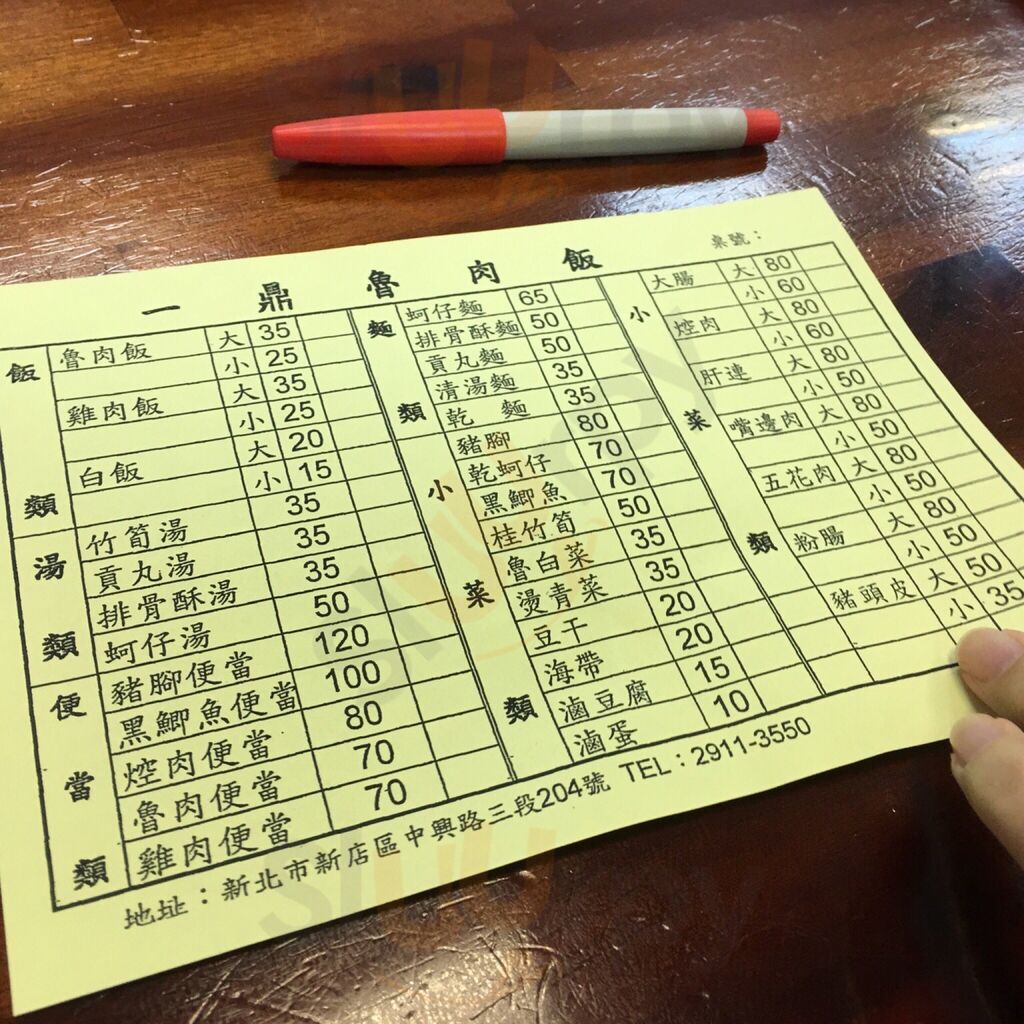 一鼎魯肉飯
桌號：
飯類
魯肉飯 大 35
小 25
雞肉飯 大 35
小 25
白飯 大 20
小 15
湯類
竹筍湯 35
貢丸湯 35
排骨酥湯 35
蚵仔湯 50
便當類
豬腳便當 120
黑鯽魚便當 100
焢肉便當 80
魯肉便當 70
雞肉便當 70
麵類
蚵仔麵 65
排骨酥麵 50
貢丸麵 50
清湯麵 35
乾麵 35
小菜類
豬腳 80
乾蚵仔 70
黑鯽魚 70
桂竹筍 50
魯白菜 35
燙青菜 35
豆干 20
海帶 20
滷豆腐 15
滷蛋 10
小菜類
大腸 大 80
小 60
焢肉 大 80
小 60
肝連 大 80
小 50
嘴邊肉 大 80
小 50
五花肉 大 80
小 50
粉腸 大 80
小 50
豬頭皮 大 50
小 35
地址：新北市新店區中興路三段204號 TEL：2911-3550